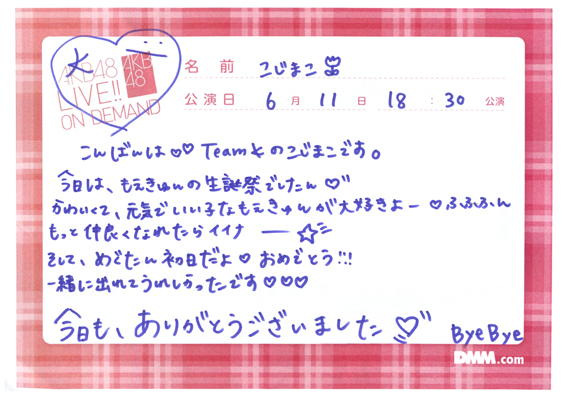 大
AKB48
LIVE!!
ON DEMAND
AKB
48
名前 こじまこ
公演日 6月11日 18:30公演
こんばんは♡♡ Team Kのこじまこです。
今日は、もえきゅんの生誕祭でしたん♡
かわいくて、元気でいい子なもえきゅんが大好きよー ♡ふふふん
もっと仲良くなれたらイイナ ー☆
そして、めぐたん初日だよ♡おめでとう!!!
一緒に出れてうれしかったです♡♡♡
今日も、ありがとうございました♡
ByeBye
DMM.com